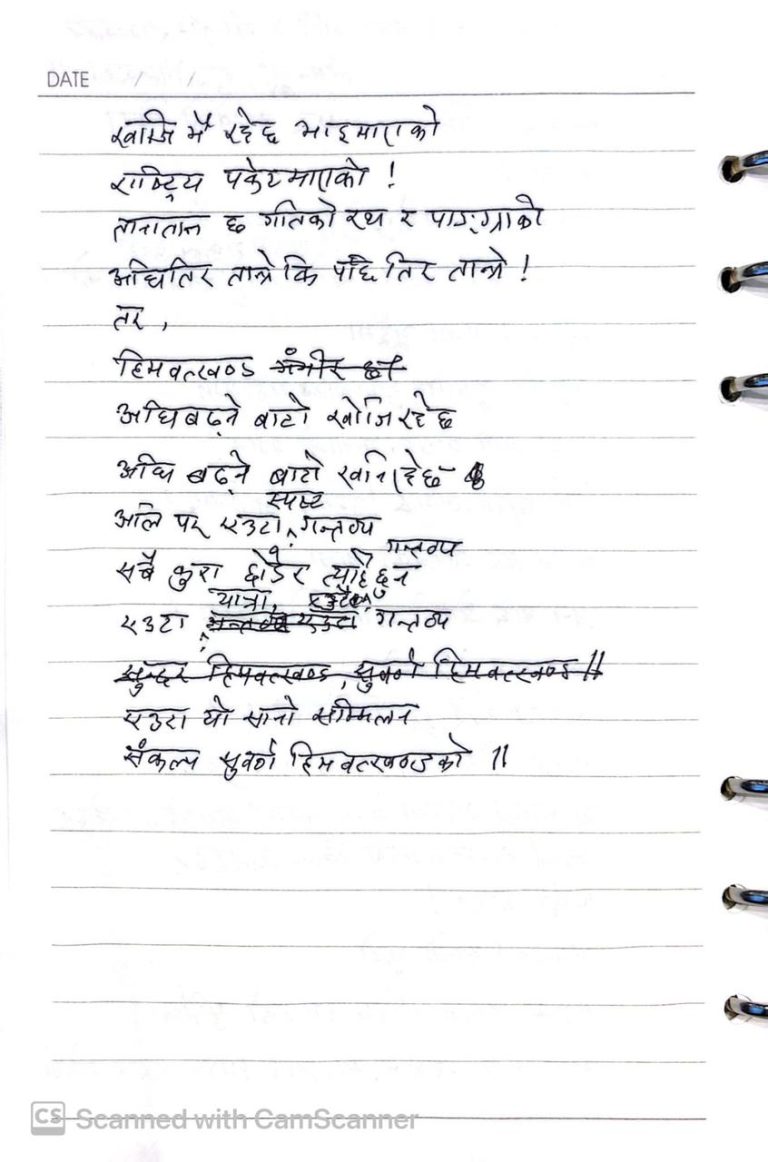 DATE / / /
खाम्जि मै रहेछ भाइमाराको
राष्ट्रिय पकेटमाराको !
तानातान छ गतिको रथ र पाङ्ग्राको
अघितिर तान्ने कि पछितिर तान्ने !
तर ,
हिमवत्खण्ड गंभीर छ
अघि बढ्ने बाटो खोजिरहेछ
अघि बढ्ने बाटो खनिरहेछ
अलि पर एउटा स्पष्ट गन्तव्य
सबै कुरा छोडेर त्यहि हुन गन्तव्य
एउटा यात्रा, एउटा गन्तव्य
सुन्दर हिमवत्खण्ड, सुवर्ण हिमवत्खण्ड ॥
एउटा यो सानो सम्मिलन
संकल्प सुवर्ण हिमवत्खण्डको ॥
CS Scanned with CamScanner